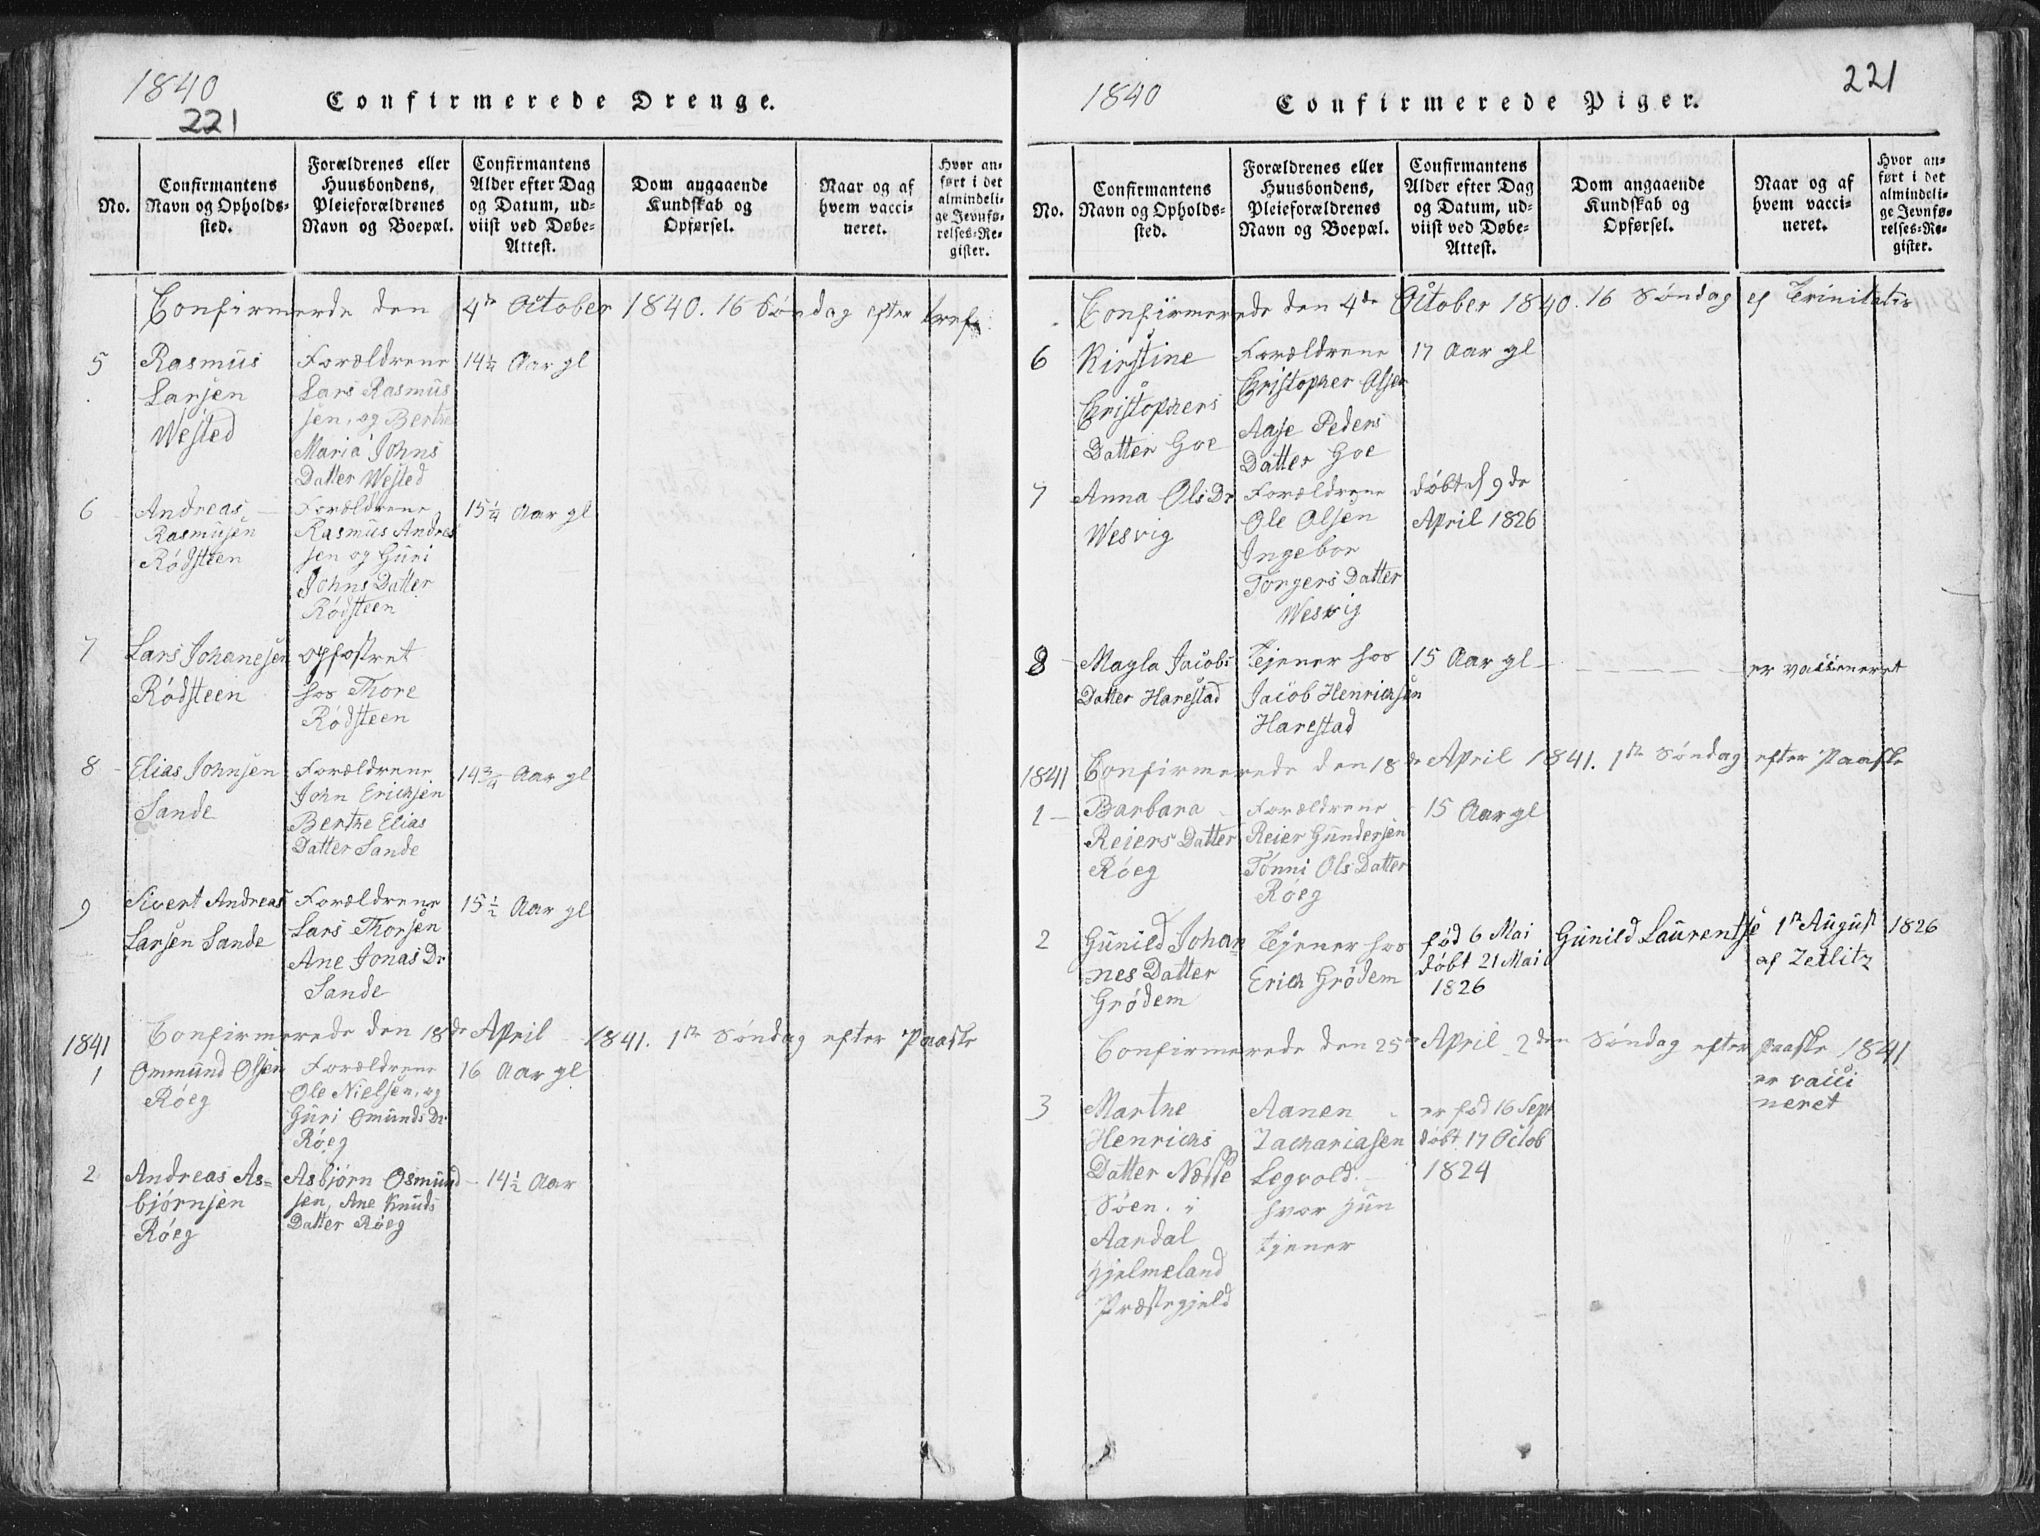 1840
221
Confirmerede Drenge.
No.
Confirmantens
Navn og Opholds-
sted.
Forældrenes eller
Huusbondens,
Pleieforældrenes
Navn og Boepæl.
Confirmantens
Alder efter Dag
og Datum, ud-
viist ved Døbe-
Attest.
Dom angaaende
Kundskab og
Opførsel.
Naar og af
hvem vacci-
neret.
Hvor an-
ført i det
almindeli-
ge Jevnfø-
relses-Re-
gister.
Confirmerede den 4de October 1840. 16 Søndag efter tref.
5
Rasmus
Larsen
Wested
Forældrene
Lars Rasmus
sen, og Berthe
Maria Johns
Datter Wested
14¼ Aar gl
6
Andreas
Rasmusen
Rødsteen
Forældrene
Rasmus Andrea
sen og Guri
Johns Datter
Rødsteen
15¼ Aar gl
7
Lars Johanesen
Rødsteen
opfostret
hos Thore
Rødsteen
8
Elias Johnsen
Sande
Forældrene
John Erichsen
Berthe Elias
Datter Sande
14¾ Aar gl
9
Sivert Andreas
Larsen Sande
Forældrene
Lars Thorsen
Ane Jonas Dr
Sande
15½ Aar gl
1841
Confirmerede den 18de April 1841. 1ste Søndag efter Paaske
1
Ommund Olsen
Røeg
Forældrene
Ole Nielsen, og
Guri Omunds Dr
Røeg
16 Aar gl
2
Andreas As-
bjørnsen
Røeg
Asbjørn Osmund
sen, Ane Knuds
Datter Røeg
14½ Aar
1840
221
Confirmerede Piger.
No.
Confirmantens
Navn og Opholds-
sted.
Forældrenes eller
Huusbondens,
Pleieforældrenes
Navn og Boepæl.
Confirmantens
Alder efter Dag
og Datum, ud-
viist ved Døbe-
Attest.
Dom angaaende
Kundskab og
Opførsel.
Naar og af
hvem vacci-
neret.
Hvor an-
ført i det
almindeli-
ge Jevnfø-
relses-Re-
gister.
Confirmerede den 4de October 1840. 16 Søndag ef Trinitatis
6
Kirstine
Christophers
Datter Goe
Forældrene
Christopher Olsen
Aase Peders
Datter Goe
17 Aar gl
7
Anna Ols Dr
Wesvig
Forældrene
Ole Olsen
Ingebor
Torgers Datter
Wesvig
døbt d 9de
April 1826
8
Magla Jacobs
Datter Harestad
Tjener hos
Jacob Henrichsen
Harestad
15 Aar gl
er vaccineret
1841
Confirmerede den 18de April 1841. 1ste Søndag efter Paaske
1
Barbara
Reiers Datter
Røeg
Forældrene
Reier Gundersen
Tønni Ols Datter
Røeg
15 Aar gl
2
Gunild Johan
nes Datter
Grødem
Tjener hos
Erich Grødem
fød 6 Mai
døbt 21 Mai
1826
Gunild Laurentse
1ste August 1826
af Zetlitz
Confirmerede den 25de April 2den Søndag efter paaske 1841
3
Marthe
Henrichs
Datter Næsse
Søen. i
Aardal
Hjelmeland
Præstegjeld
Aanen
Zachariasen
Legvold.
hvor hun
tjener
er fød 16 Sept
døbt 17 Octob
1824
er vacci
neret